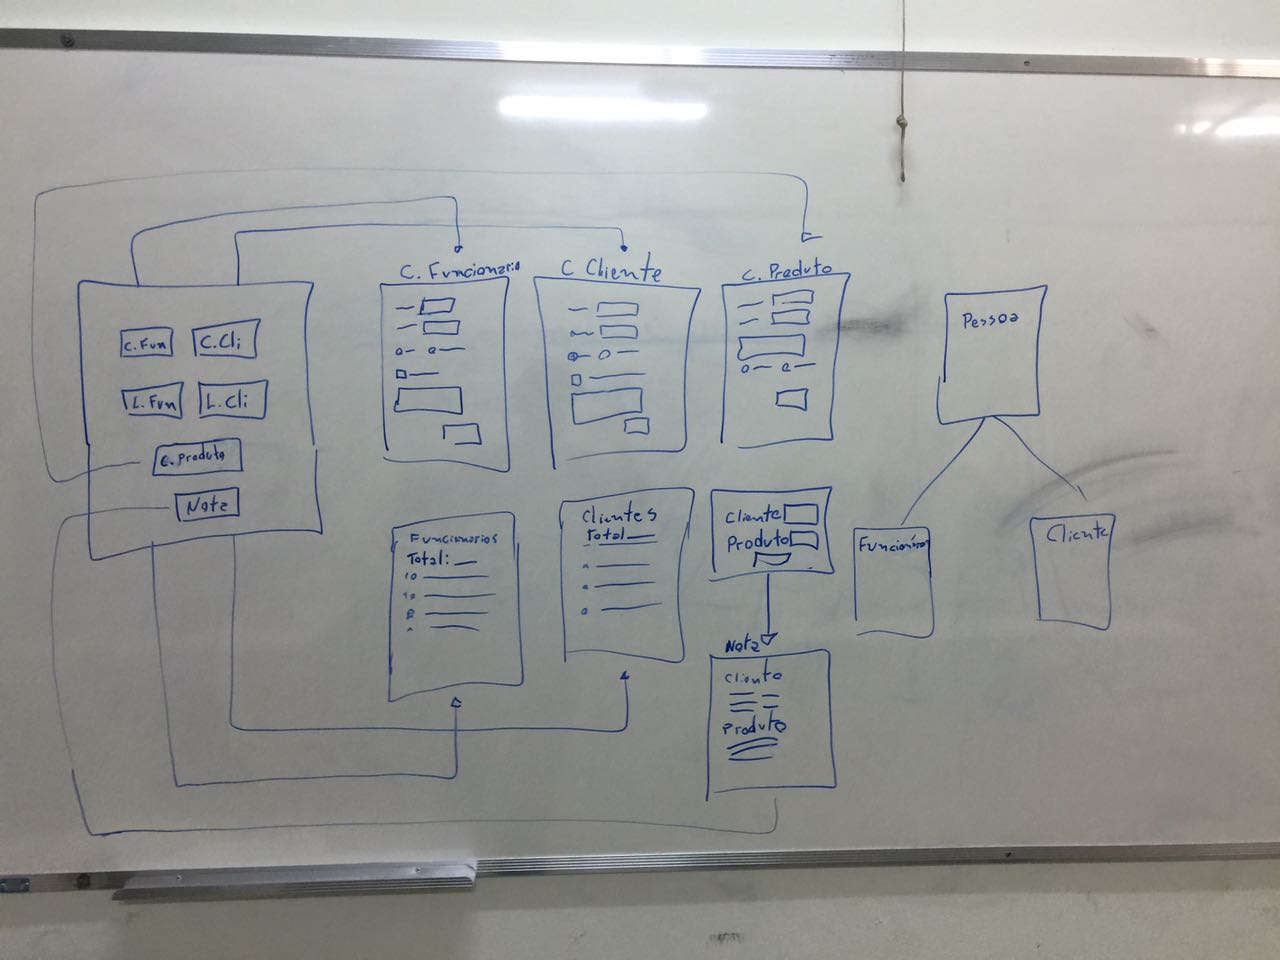 C. Fun
C.Cli
L. Fun
L. Cli
C. Produto
Nota
C. Funcionario
C Cliente
C. Produto
Funcionarios
Total:
Clientes
Total
Cliente
Produto
Nota
Cliente
Produto
Pessoa
Funcionários
Cliente